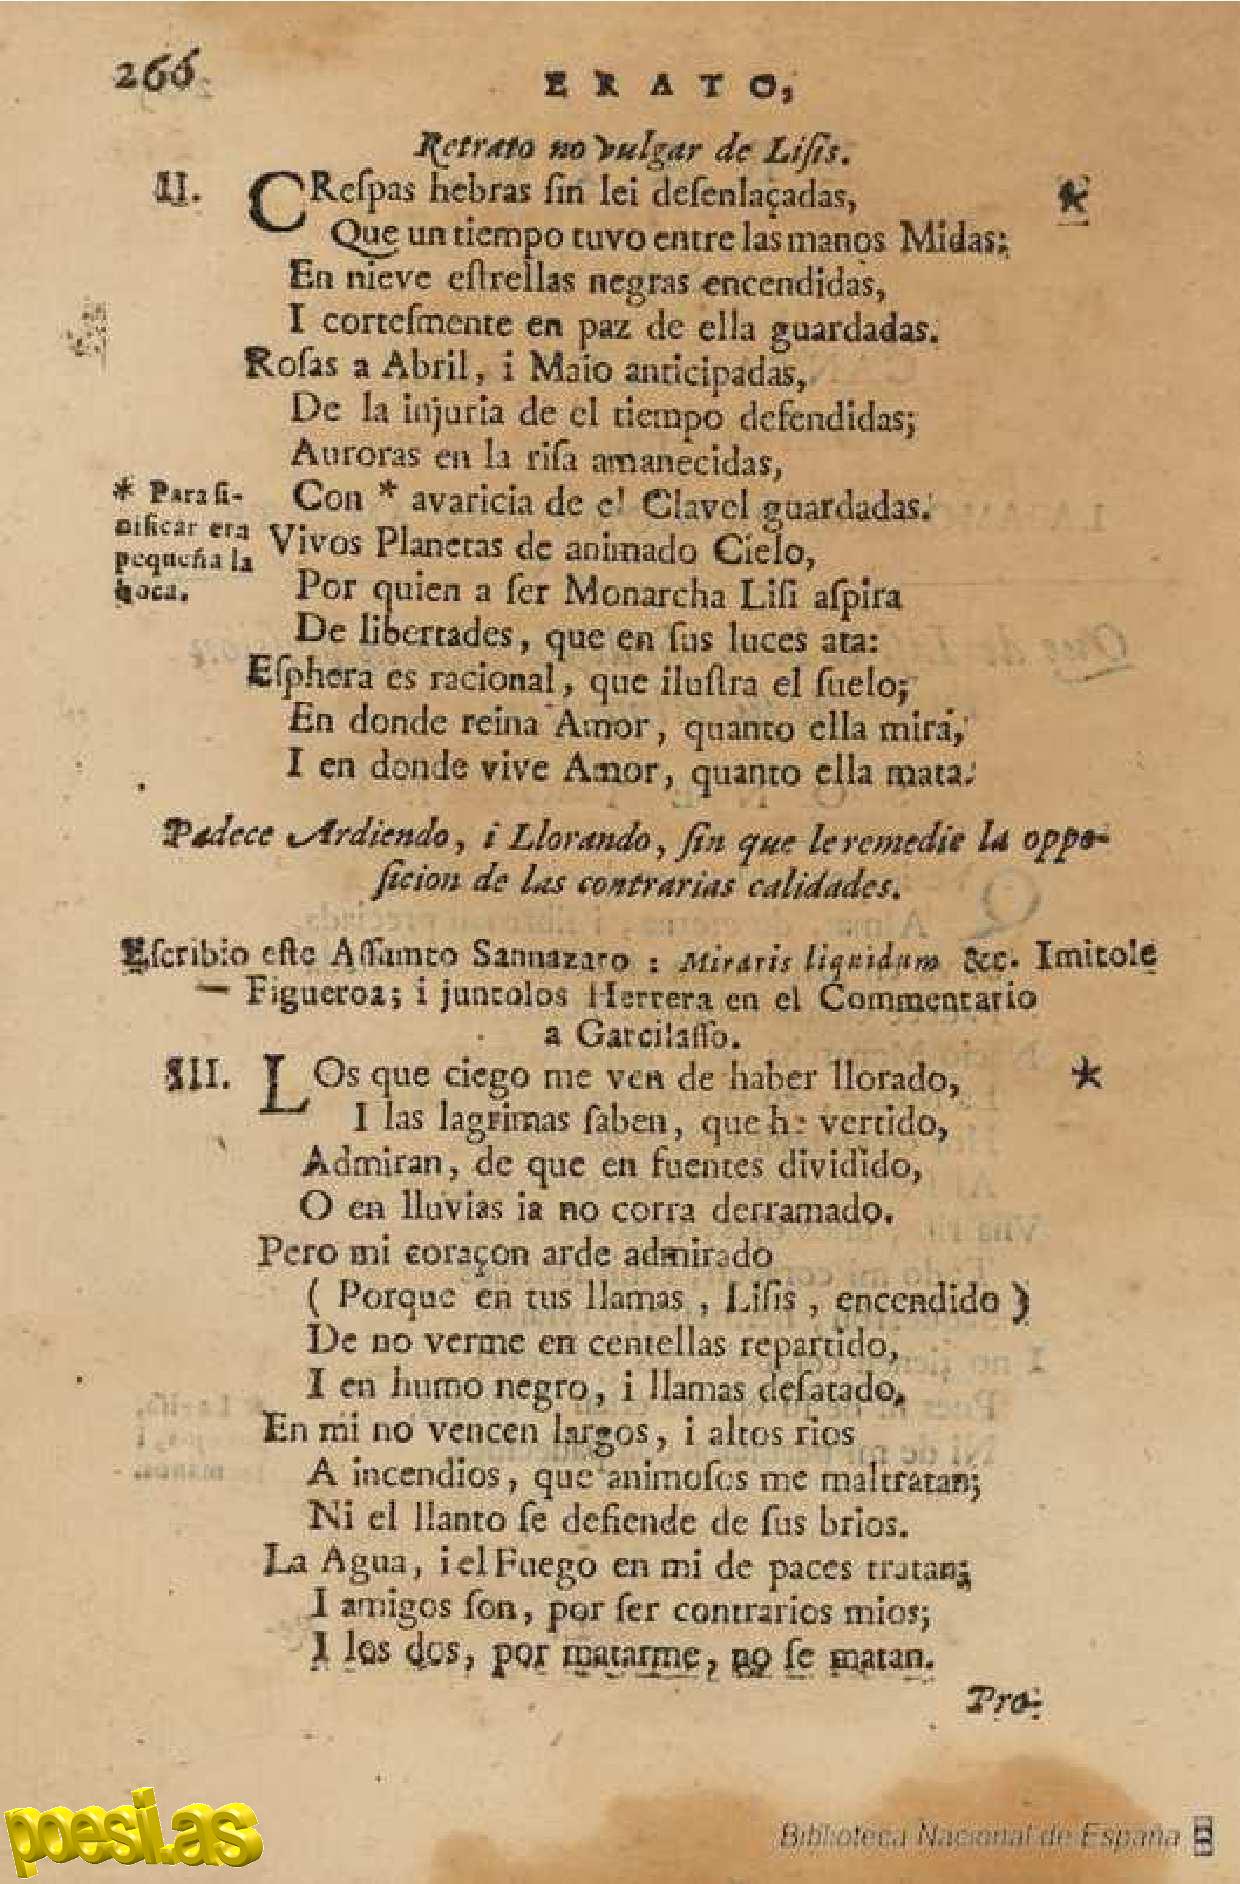 266
ERATO,
Retrato no vulgar de Liſis.
II. CReſpas hebras ſin lei deſenlaçadas, *
Que un tiempo tuvo entre las manos Midas;
En nieve eſtrellas negras encendidas,
I corteſmente en paz de ella guardadas.
Roſas a Abril, i Maio anticipadas,
De la injuria de el tiempo defendidas;
Auroras en la riſa amanecidas,
Con * avaricia de el Clavel guardadas.
* Para ſi-
nificar era
pequeña la
boca.
Vivos Planetas de animado Cielo,
Por quien a ſer Monarcha Liſi aſpira
De libertades, que en ſus luces ata:
Eſphera es racional, que iluſtra el ſuelo;
En donde reina Amor, quanto ella mira,
I en donde vive Amor, quanto ella mata.
Padece Ardiendo, i Llorando, ſin que le remedie la oppo-
ſicion de las contrarias calidades.
Eſcribio eſte Aſſumto Sannazaro : Miraris liquidum &c. Imitole
Figueroa; i juntolos Herrera en el Commentario
a Garcilaſſo.
III. LOs que ciego me ven de haber llorado, *
I las lagrimas ſaben, que he vertido,
Admiran, de que en fuentes dividido,
O en lluvias ia no corra derramado.
Pero mi coraçon arde admirado
( Porque en tus llamas , Liſis , encendido )
De no verme en centellas repartido,
I en humo negro, i llamas deſatado.
En mi no vencen largos, i altos rios
A incendios, que animoſos me maltratan;
Ni el llanto ſe defiende de ſus brios.
La Agua, i el Fuego en mi de paces tratan;
I amigos ſon, por ſer contrarios mios;
I los dos, por matarme, no ſe matan.
Pro-
poesi.as
Biblioteca Nacional de España